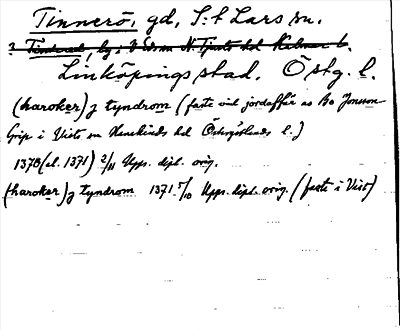 Tinnerö, gd, S:t Lars sn.
? Tinnerö, by i V Ed sn N Tjusts hd Kalmar l.
Linköpings stad. Östg. l.
(haroker) j tyndrom (faste vid jordaffär av Bo Jonsson
Grip i Vists sn Hanekinds hd Östergötlands l.)
1370 (el. 1371) 2/11 Upps. dipl. orig.
(haroker) j tyndrom 1371 5/10 Upps. dipl. orig. (faste i Vist)